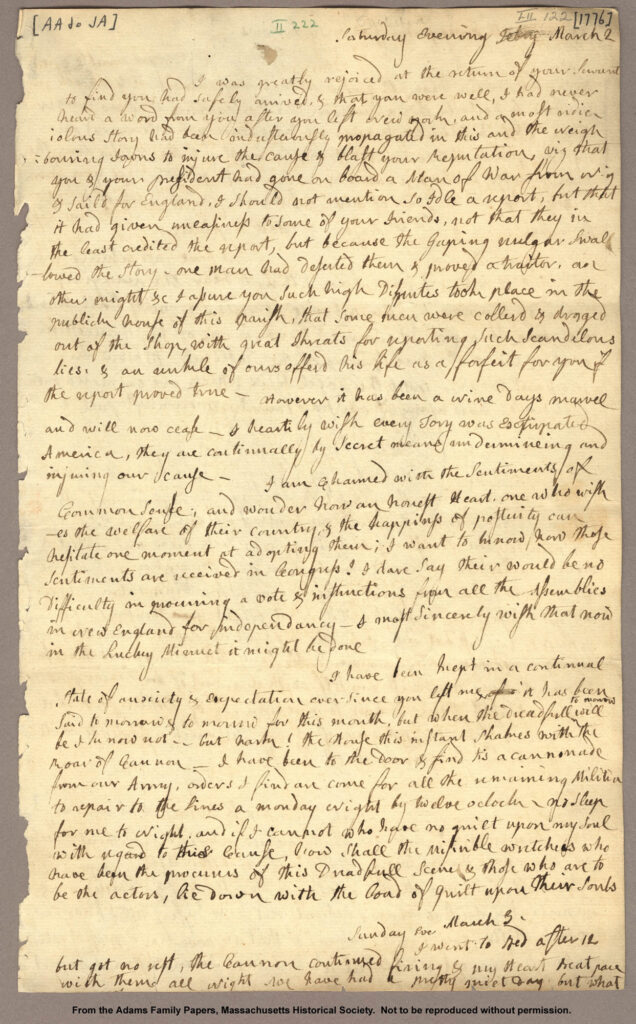 [AA to JA]
II 222
LII 122
[1776]
Saturday Evening Feby March 2
I was greatly rejoiced at the return of your Servant
to find you had safely arrived, & that you were well, I had never
heard a word from you after you left New york, and a most ridic
iolous Story had been industerously propagated in this and the neigh
bouring Towns to injure the cause & blast your Reputation, viz that
you & your president had gone on board a Man of War from N-y
& saild for England, I should not mention so Idle a report, but that
it had given uneasiness to some of your Friends, not that they in
the least credited the report, but because the Gaping vulgar swal
lowed the Story - one man had deserted them & proved a traitor, an
other might &c I assure you such high Disputes took place in the
publick House of this parish, that some men were collerd & dragged
out of the Shop, with great threats for reporting such scandelous
lies, & an unkle of ours offerd his life as a forfeit for you if
the report proved true - However it has been a nine Days marvel
and will now cease - I heartily wish every Tory was Extirpated
America, they are continually by secret means undermineing and
injuring our cause - I am charmed with the Sentiments of
Common Sense, and wonder how an honest Heart, one who wish
-es the welfare of their country, & the happiness of posterity can
hesitate one moment at adopting them; I want to know how those
Sentiments are received in Congress? I dare say their would be no
Difficulty in procuring a vote & instructions from all the Assemblies
in New England for independancy - I most sincerely wish that now
in the Luckey Minuet it might be done
I have been kept in a continual
State of anxiety & Expectation ever since you left me, it has been
said to morrow & to morrow for this month, but when the dreadfull to morrow will
be I know not - but hark! the House this instant shakes with the
roar of Cannon - I have been to the door & find tis a cannonade
from our Army, orders I find are come for all the remaining Militia
to repair to the Lines a monday night by twelve oclock - no Sleep
for me to Night, and if I cannot who have no guilt upon my Soul
with regard to this Cause, how shall the misible wretches who
have been the procurers of this Dreadfull Scene & those who are to
be the actors, lie down with the load of guilt upon their Souls
Sunday Eve March 3.
I went to Bed after 12
but got no rest, the Cannon continued firing & my Heart Beat pace
with them all night we have had a pretty quiet Day but what
From the Adams Family Papers, Massachusetts Historical Society. Not to be reproduced without permission.